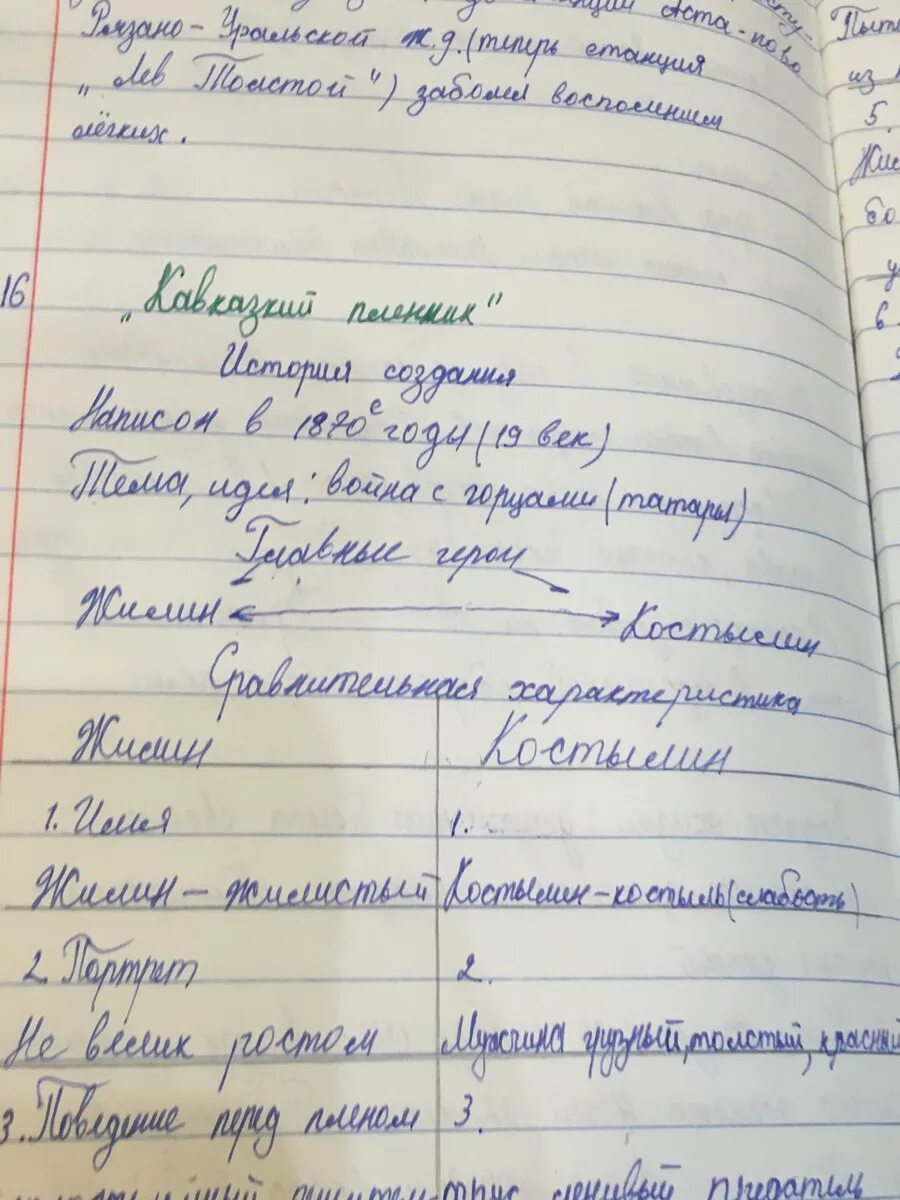 станции Аста-пово
Рязано-Уральской ж.д. (теперь станция
„Лев Толстой") заболел воспалением
лёгких.
16
„Кавказкий пленник"
История создания
Написон в 1870е годы (19 век)
Тема, идея: война с горцами (татары)
Главные герои
Жилин Костылин
Сравнительная характеристика
Жилин Костылин
1. Имя 1.
Жилин – жилистый Костылин – костыль (слабость)
2. Портрет 2.
Не велик ростом Мужчина грузный, толстый, красный
3. Поведение перед пленом 3.
трус ленивый предатель
из
5.
бо
у
в